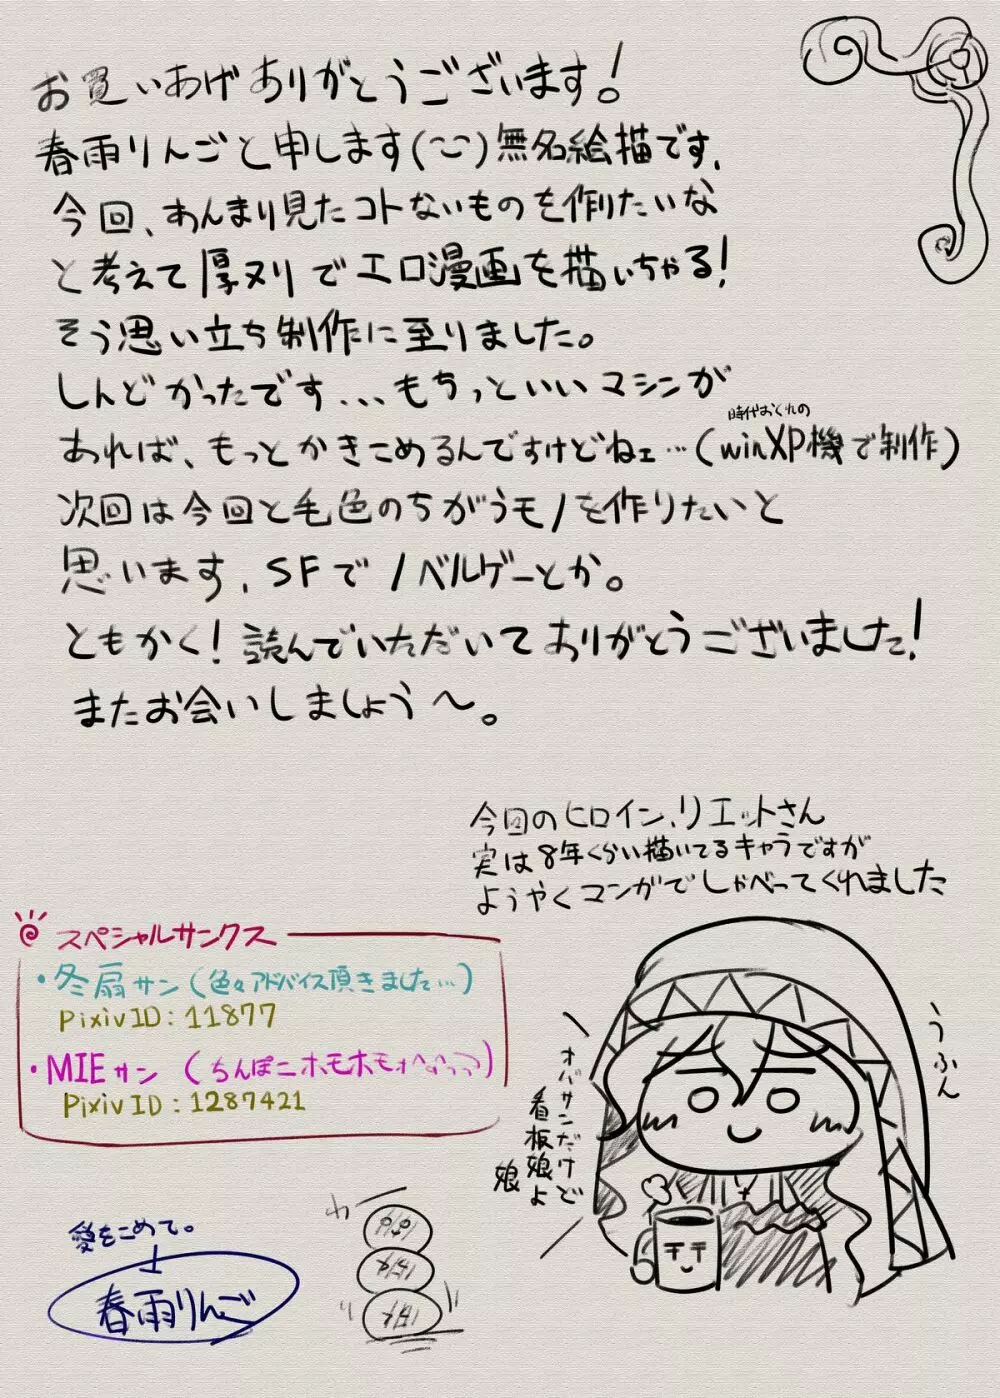 お買いあげありがとうございます!
春雨りんごと申します(~ニ)無名絵描です、
今回、あんまり見たコトないものを作りたいな
と考えて厚ヌリでエロ漫画を描いちゃる!
そう思い立ち制作に至りました。
しんどかったです...もちっといいマシンが
時代おくれの
あれば、もっとかきこめるんですけどねェ…(winXP機で制作)
次回は今回と毛色のちがうモノを作りたいと
思います、SFでノベルゲーとか。
ともかく!読んでいただいてありがとうございました!
またお会いしましょう~。
今回のヒロイン、リエットさん
実は8年くらい描いてるキャラですが
ようやくマンガでしゃべってくれました
スペシャルサンクス
・冬扇サン(色々アドバイス頂きました…)
PixivID:11877
・MIEサン(ちんぽニホモホモ
PixivID:1287421
うふん
オバサンだけど
看板娘よ
娘
愛をこめて。
春雨りんご